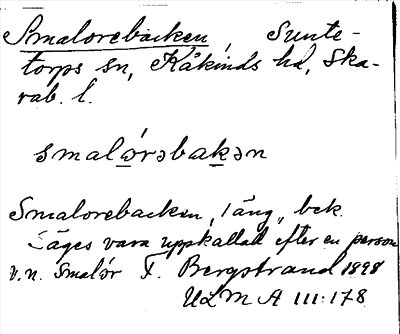 Smalorebacken, Sunte-
torps sn, Kåkinds hd, Ska-
rab. l.
smalǫ́rəbakən
Smalorebacken, 1 äng, bek.
Säges vara uppkallad efter en person
v. n. Smalór F. Bergstrand 1898
ULMA 111:178.